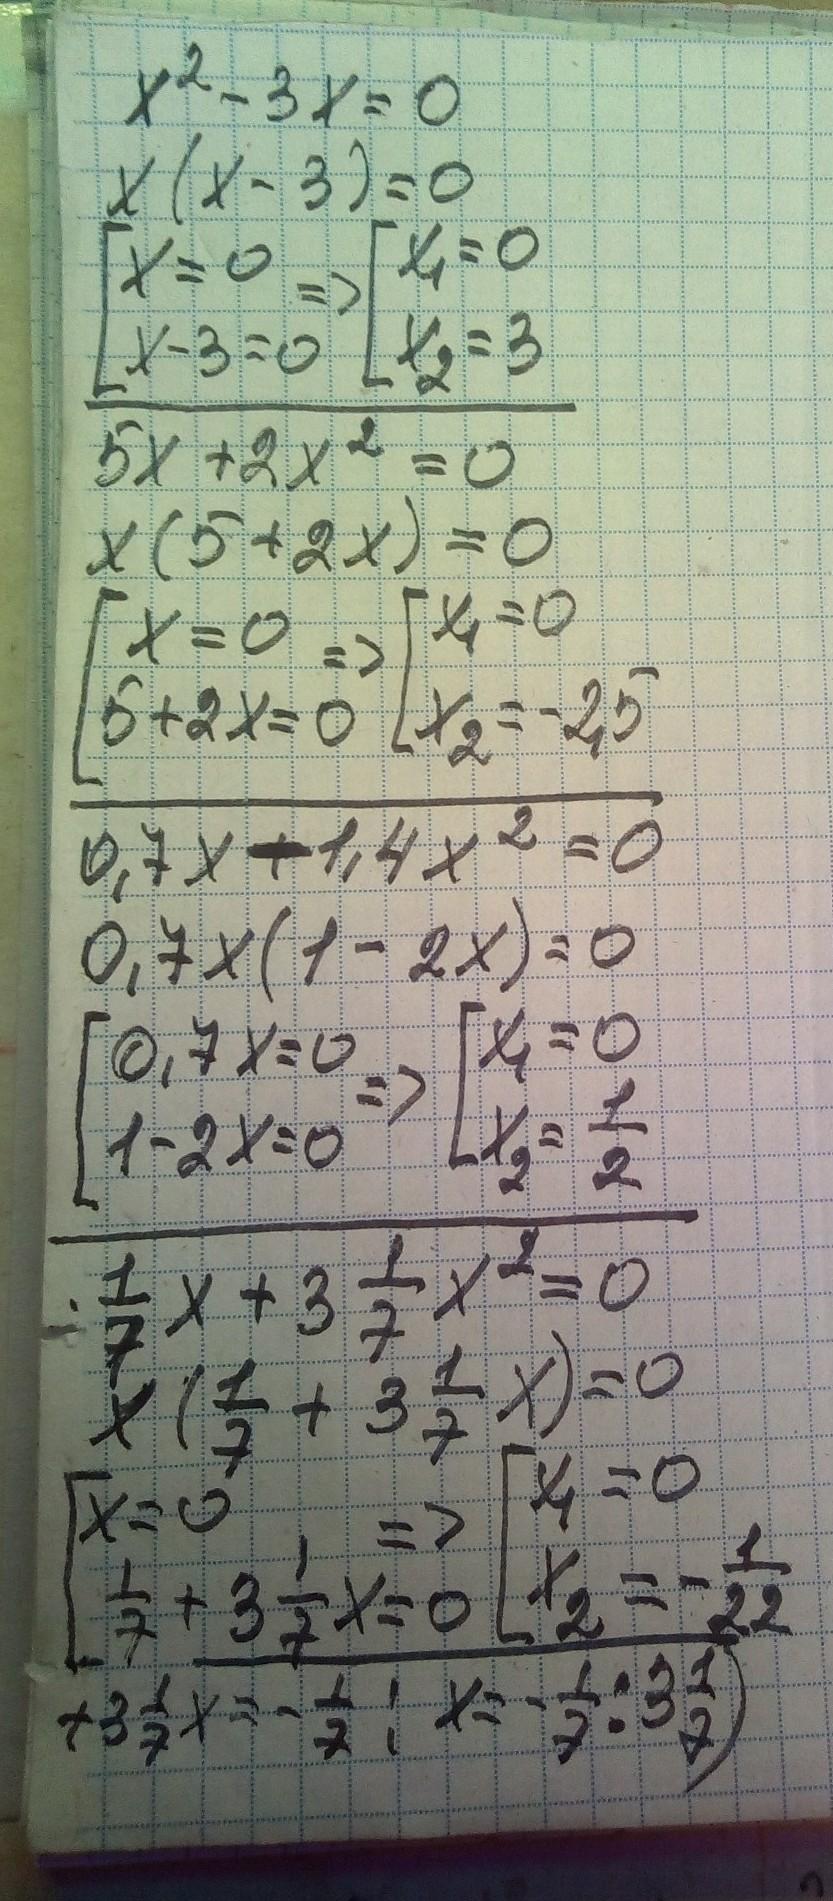 x² - 3x = 0
x(x - 3) = 0
[x = 0 => [x₁ = 0
[x - 3 = 0 [x₂ = 3
5x + 2x² = 0
x(5 + 2x) = 0
[x = 0 => [x₁ = 0
[5 + 2x = 0 [x₂ = -2,5
0,7x - 1,4x² = 0
0,7x(1 - 2x) = 0
[0,7x = 0 => [x₁ = 0
[1 - 2x = 0 [x₂ = 1/2
1/7 x + 3 1/7 x² = 0
x(1/7 + 3 1/7 x) = 0
[x = 0 => [x₁ = 0
[1/7 + 3 1/7 x = 0 [x₂ = -1/22
+3 1/7 x = -1/7 ; x = -1/7 : 3 1/7)